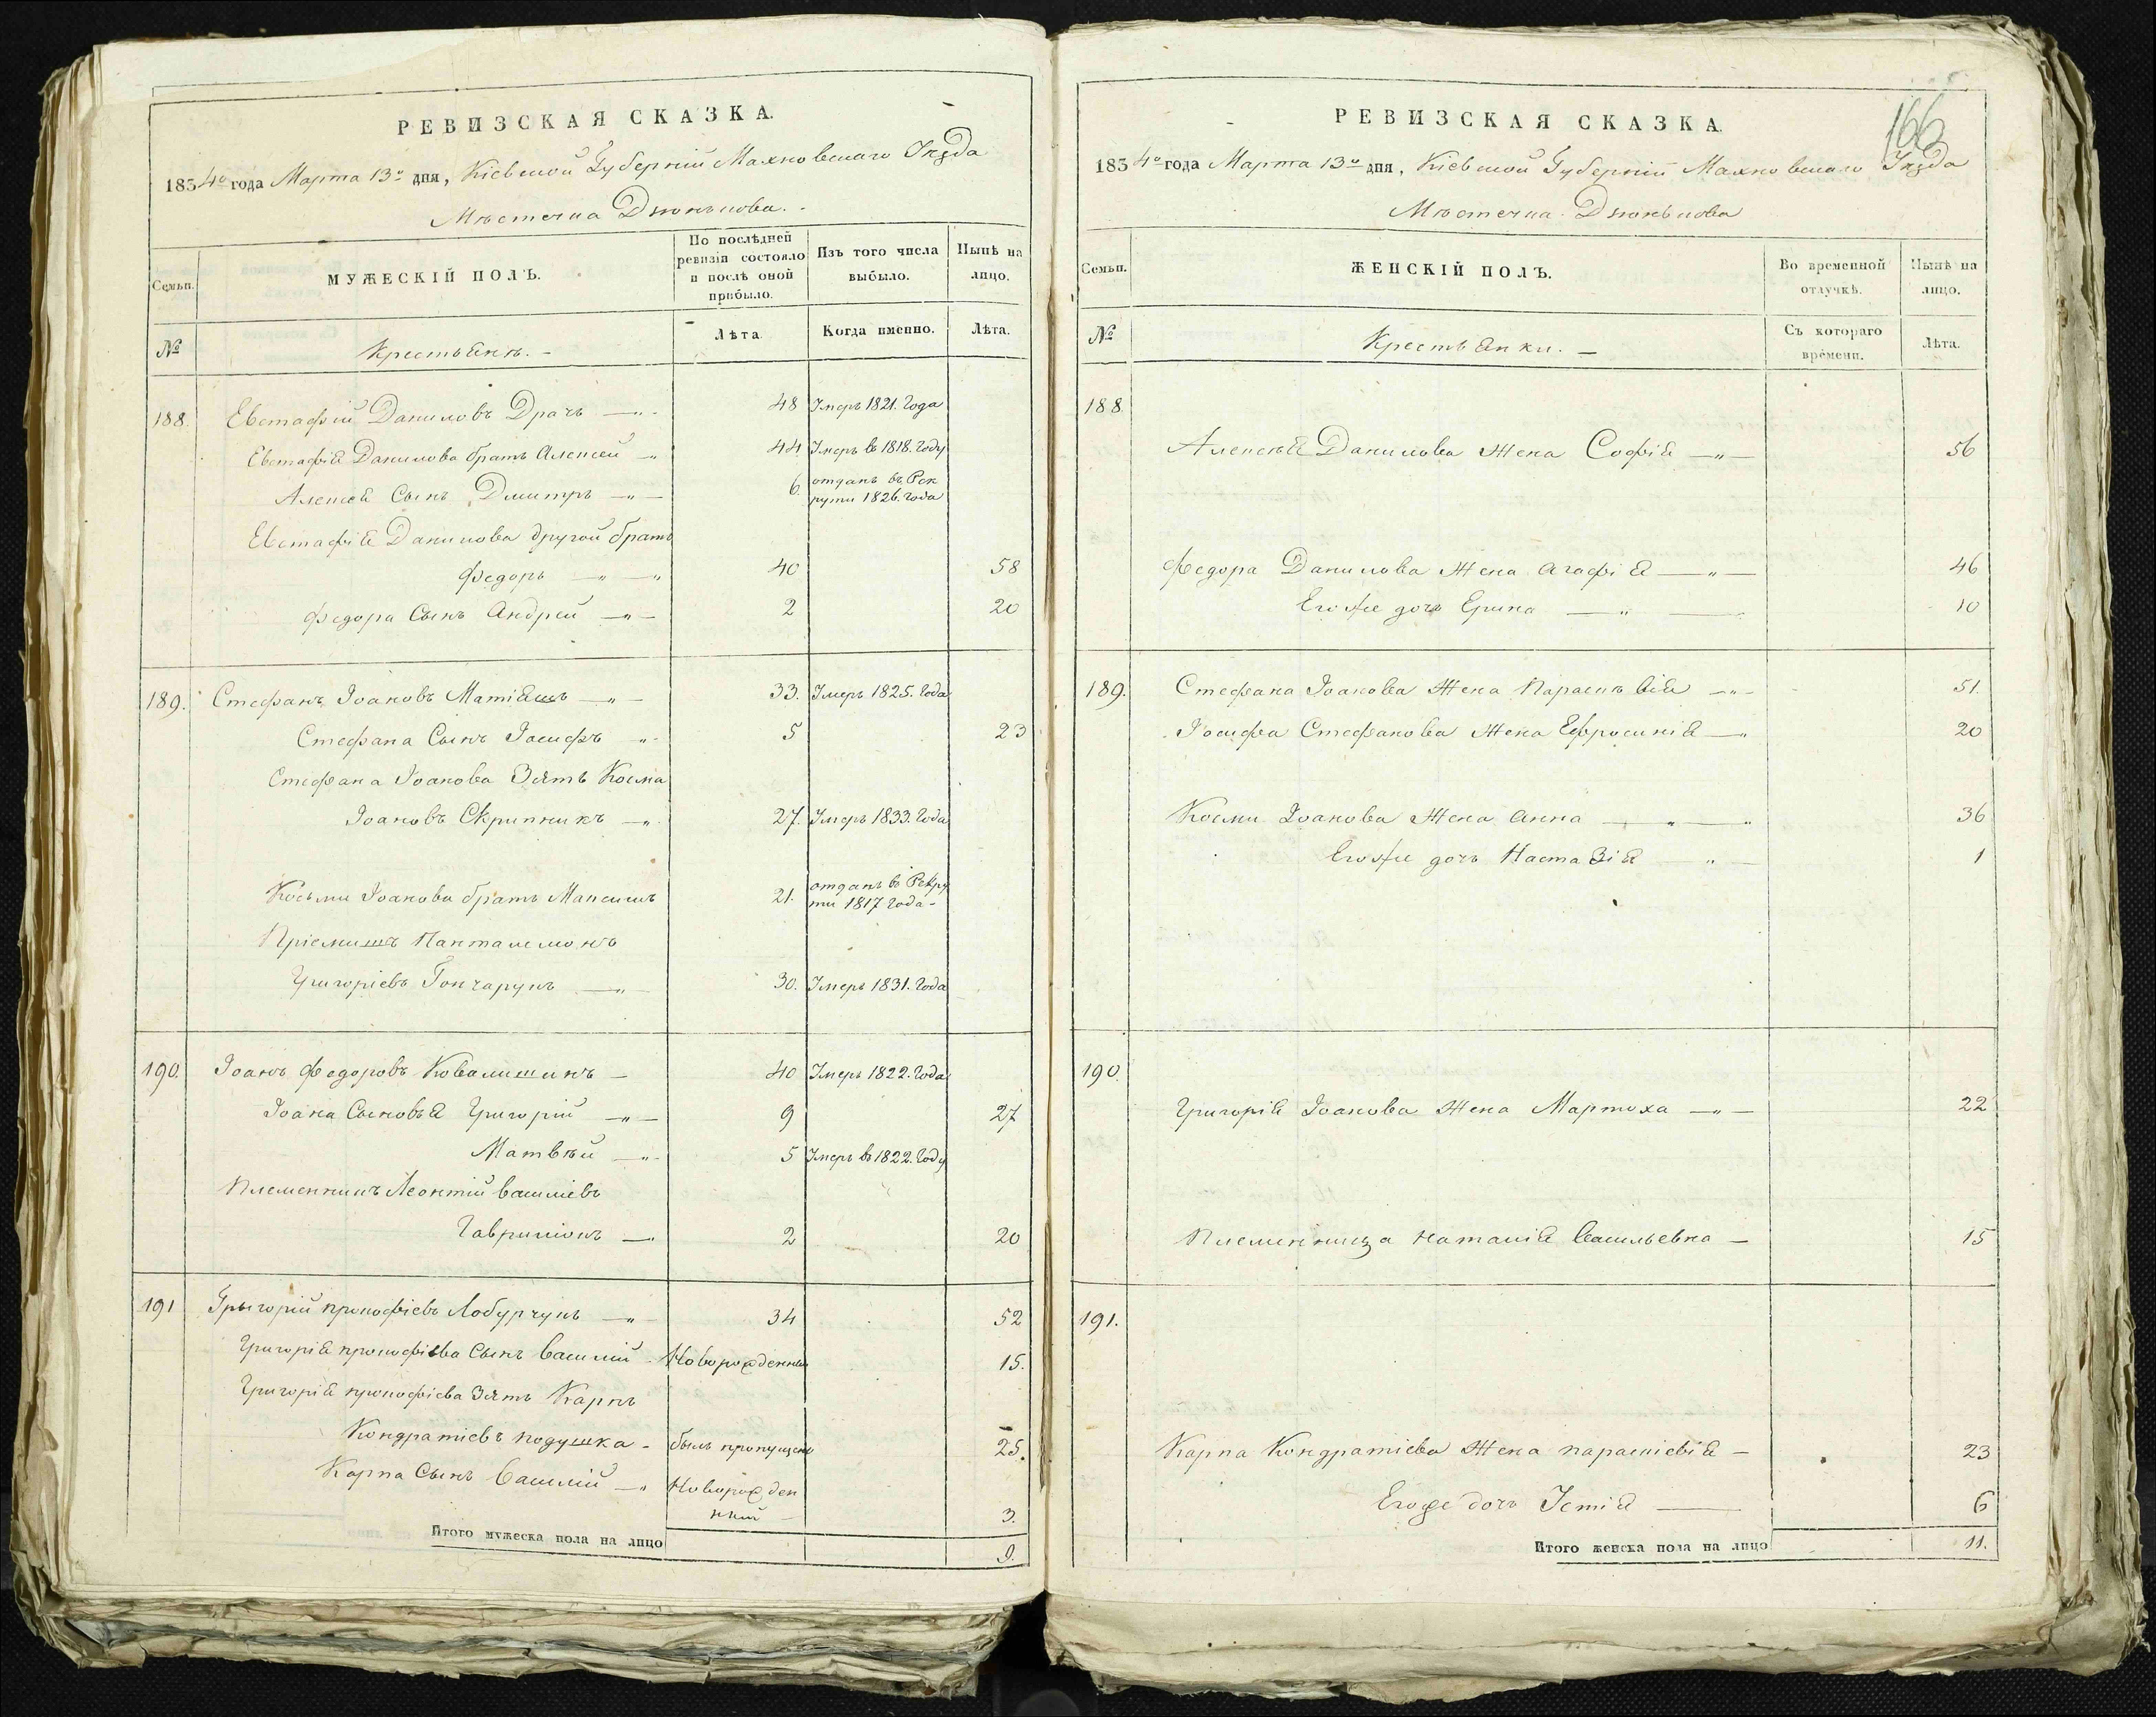 РЕВИЗСКАЯ СКАЗКА.
1834го года Марта 13го дня, Кіевской Губерніи Махновскаго Уѣзда
Мѣстечка Дзюнькова.
Семьи.
МУЖЕСКІЙ ПОЛЪ.
По послѣдней ревизіи состояло и послѣ оной прибыло.
Изъ того числа выбыло.
Нынѣ на лицо.
№
Крестьянъ. -
Лѣта.
Когда именно.
Лѣта.
188. Евстафій Даниловъ Драчъ —„- 48 Умеръ 1821. Года
Евстафія Данилова братъ Алексей —„ 44 Умеръ въ 1818. Году
Алексея Сынъ Дмитръ —„— 6. отданъ въ Рек
руты 1826. Года
Евстафія Данилова другой братъ
Федоръ —„—„ 40 58
Федора Сынъ Андрей —„— 2 20
189. Стефанъ Іоановъ Матіяшъ —„— 33. Умеръ 1825. Года
Стефана Сынъ Іосифъ „- 5 23
Стефана Іоанова Зять Косма
Іоановъ Скрипникъ —„ 27. Умеръ 1833. Года
Косьмы Іоанова братъ Максимъ 21. отданъ въ Рекру
ты 1817 Года-
Пріемишъ Панталемонъ
Григоріевъ Гончарукъ —„— 30. Умеръ 1831. Года
190. Іоанъ Федоровъ Ковалишинъ — 40 Умеръ 1822. Года
Іоана Сыновья Григорій —„— 9 27
Матвѣй —„- 5 Умеръ въ 1822. Году
Племенникъ Леонтій Василіевъ
Гаврилюкъ —„ 2 20
191 Грыгорій прокофіевъ Лобурчукъ —„— 34 52
Григорія прокофіева Сынъ Василій - Новорожденный 15.
Григорія прокофіева Зять Карпъ
Кондратіевъ подушка - былъ пропущенъ 25.
Карпа Сынъ Василій —„ Новорожден
ный — 3.
Итого мужеска пола на лицо 9.
166
РЕВИЗСКАЯ СКАЗКА.
1834го года Марта 13го дня, Кіевской Губерніи Махновскаго Уѣзда
Мѣстечка Дзюнькова
Семьи.
ЖЕНСКІЙ ПОЛЪ.
Во временной отлучкѣ.
Нынѣ на лицо.
№
Крестьянки. —
Съ котораго времени.
Лѣта.
188.
Алексѣя Данилова Жена Софія —„— 56
Федора Данилова Жена Агафія —„— 46
Его же дочь Ерина —„— 10
189. Стефана Іоанова Жена Параскѣвія —„- 51.
Іосифа Стефанова Жена Ефросинія —„ 20
Космы Іоанова Жена Анна —„—„ 36
Его же дочь Настазія —„— 1
190.
Григорія Іоанова Жена Мартоха —„— 22
Племенница Наталія Васильевна — 15
191.
Карпа Кондратіева Жена параскіевія — 23
Егоже дочь Устія — 6
Итого женска пола на лицо 11.